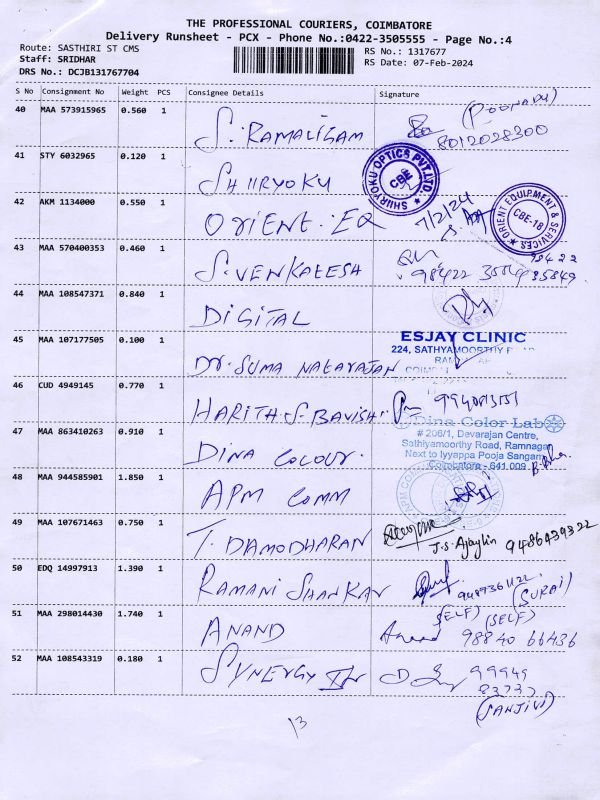 THE PROFESSIONAL COURIERS, COIMBATORE
Delivery Runsheet - PCX - Phone No.:0422-3505555 - Page No.:4
Route: SASTHIRI ST CMS
RS No.: 1317677
Staff: SRIDHAR
RS Date: 07-Feb-2024
DRS No.: DCJB131767704
S No Consignment No Weight PCS Consignee Details Signature
40 MAA 573915965 0.560 1 S. RAMALIGAM (POONADI)
8012028300
41 STY 6032965 0.120 1 SHIIRYOKU
SHIIRYOKU OPTICS PVT.LTD CBE
42 AKM 1134000 0.550 1 ORIENT. EQ 7/2/24
ORIENT EQUIPMENT & SERVICES CBE-18
43 MAA 570400353 0.460 1 S. VENKATESH
44 MAA 108547371 0.840 1 DIGITAL
45 MAA 107177505 0.100 1 Dr. SUMA NATARAJAN
ESJAY CLINIC
224, SATHYAMOORTHY
46 CUD 4949145 0.770 1 HARITH. S. BAVISHI
47 MAA 863410263 0.910 1 DINA COLOUR.
Dina Color Lab
# 206/1, Devarajan Centre,
Sathiyamoorthy Road, Ramnagar
Next to Iyyappa Pooja Sangam
Coimbatore - 641 009
48 MAA 944585901 1.850 1 APM COMM
49 MAA 107671463 0.750 1 T. DAMODHARAN
J.S. Ajaylin 9486439322
50 EDQ 14997913 1.390 1 RAMANI SHANKAR
(SURAJ)
(SELF)
51 MAA 298014430 1.740 1 ANAND (SELF)
Anand 98840 66436
52 MAA 108543319 0.180 1 SYNERGY
99949
83737
(SANJIVI)
13